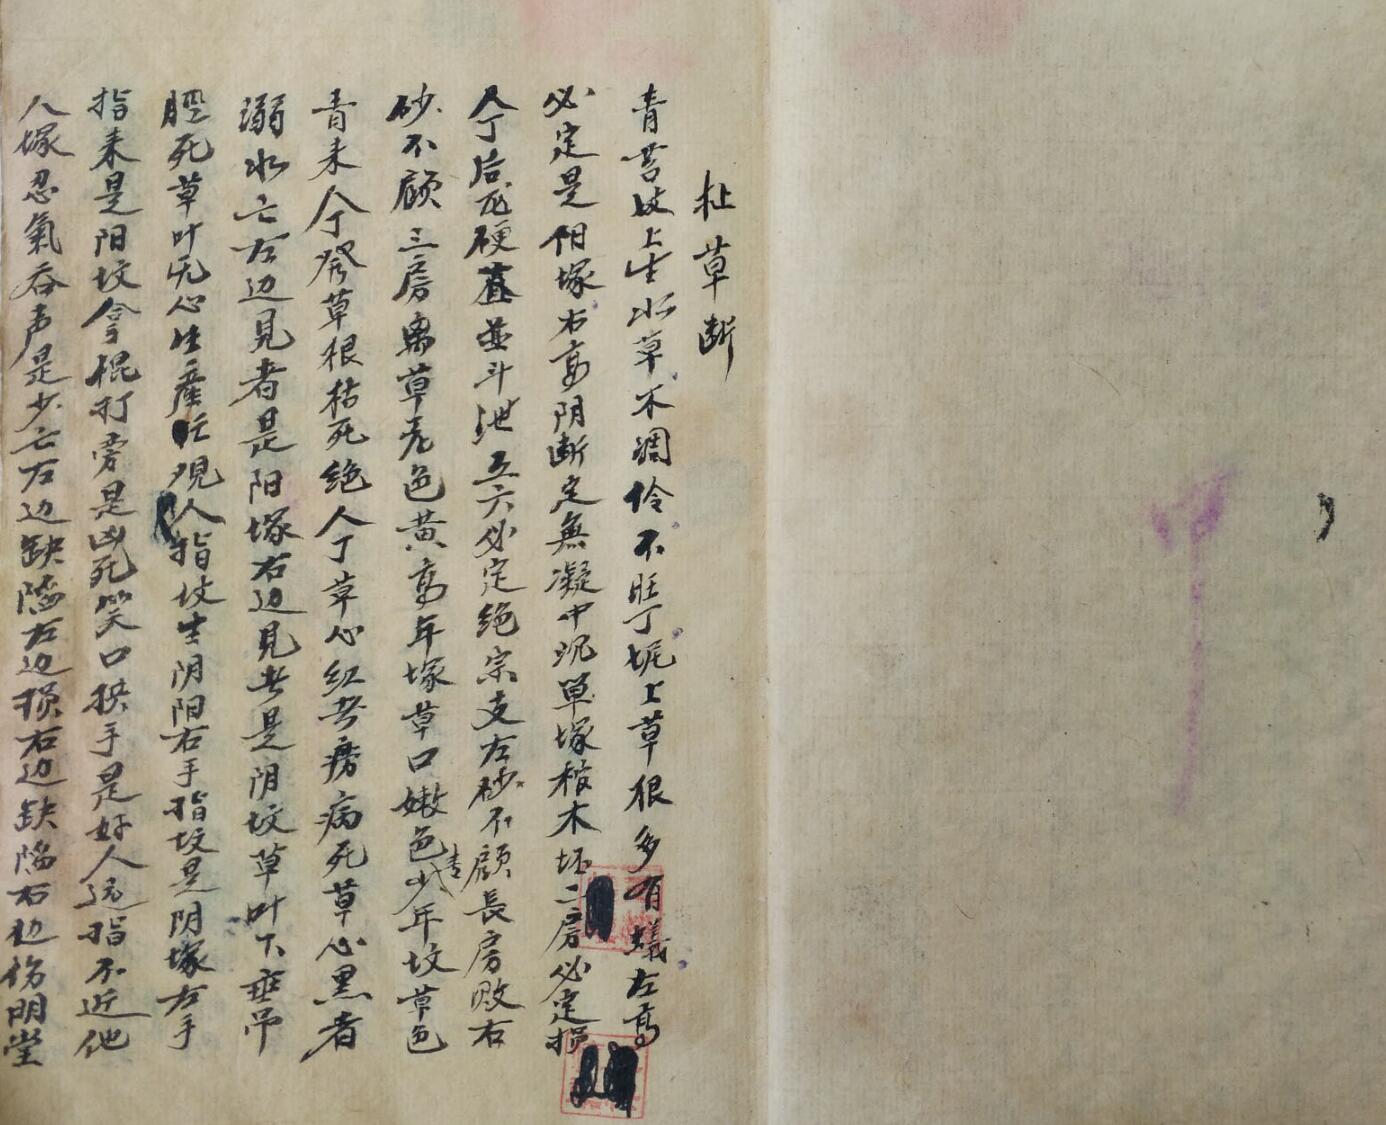 杜草断
青苔坟上生水草不凋伶不旺丁坭上草根多有蟻左高
必定是阳塚右高阴断定無凝中况单塚棺木坯二房必定损
人丁后龙硬直並斗泄五六必定绝宗支左砂不顾長房败右
砂不顾三房离草老色黄高年塚草口嫩色青少年坟草色
青来人丁發草根枯死绝人丁草心红者痨病死草心黑者
溺水亡左边見者是阳塚右边見者是阴坟草叶下垂吊
脛死草叶无心生産亡观人指坟生阴阳右手指坟是阴塚左手
指来是阳坟拿棍打旁是凶死笑口拱手是好人远指不近他
人塚忍氣吞声是少亡左边缺陷左边损右边缺陷右边伤明堂